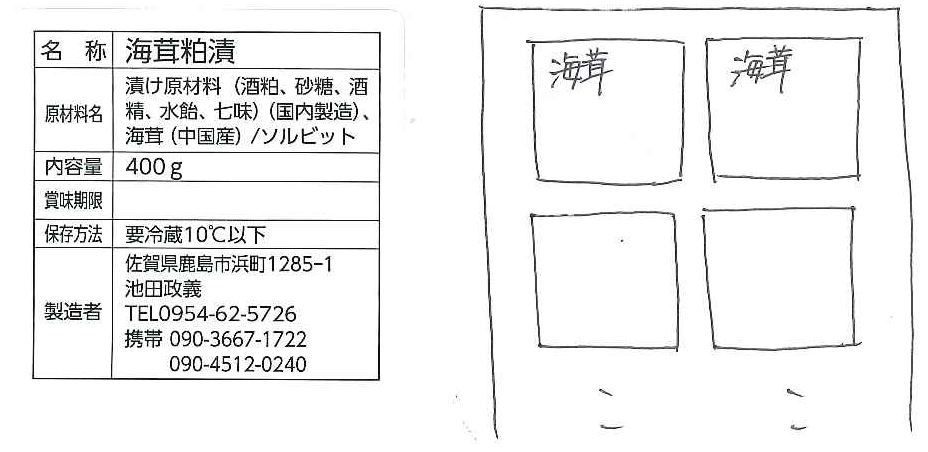 名 称 海茸粕漬
原材料名 漬け原材料(酒粕、砂糖、酒
精、水飴、七味)(国内製造)、
海茸(中国産)/ソルビット
内容量 400g
賞味期限
保存方法 要冷蔵10℃以下
製造者 佐賀県鹿島市浜町1285-1
池田政義
TEL0954-62-5726
携帯 090-3667-1722
090-4512-0240
海茸
海茸